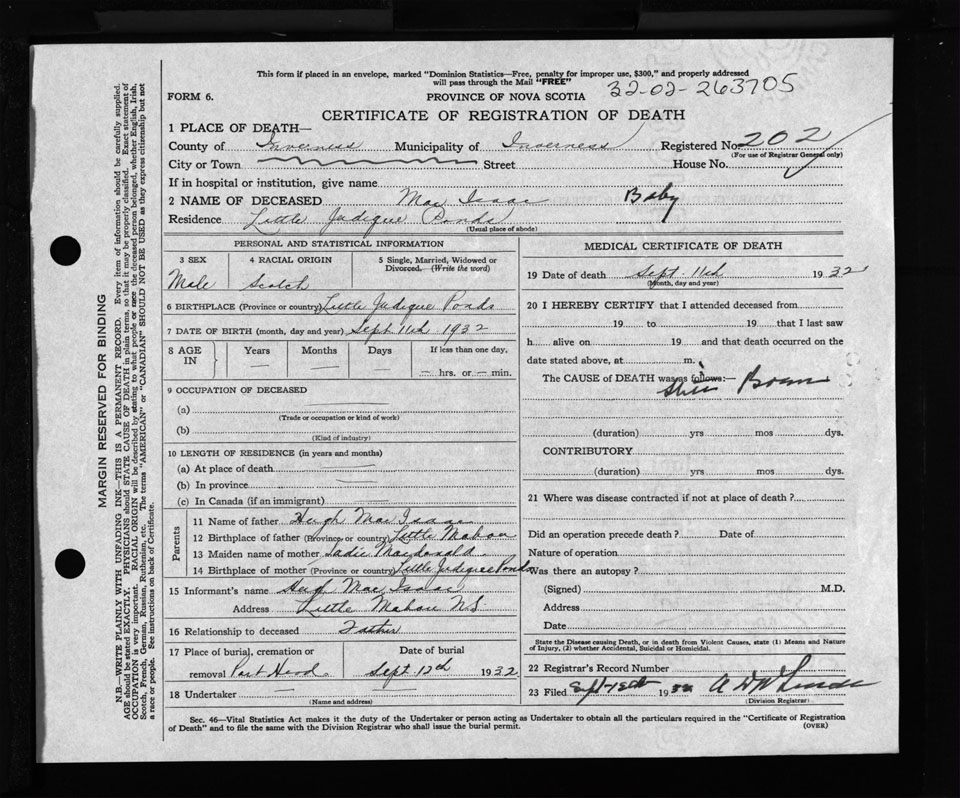 This form if placed in an envelope, marked "Dominion Statistics—Free, penalty for improper use, $300," and properly addressed
will pass through the Mail "FREE"
32-02-263705
FORM 6.
PROVINCE OF NOVA SCOTIA
CERTIFICATE OF REGISTRATION OF DEATH
1 PLACE OF DEATH—
County of Inverness Municipality of Inverness Registered No. 202
(For use of Registrar General only)
City or Town Street House No.
If in hospital or institution, give name
2 NAME OF DECEASED Mac Isaac Baby
Residence Little Judique Ponds
(Usual place of abode)
PERSONAL AND STATISTICAL INFORMATION
3 SEX 4 RACIAL ORIGIN 5 Single, Married, Widowed or
Divorced. (Write the word)
Male Scotch
6 BIRTHPLACE (Province or country) Little Judique Ponds
7 DATE OF BIRTH (month, day and year) Sept 11th 1932
8 AGE IN Years Months Days If less than one day.
— — — — hrs. or — min.
9 OCCUPATION OF DECEASED
(a)
(Trade or occupation or kind of work)
(b)
(Kind of industry)
10 LENGTH OF RESIDENCE (in years and months)
(a) At place of death
(b) In province
(c) In Canada (if an immigrant)
Parents
11 Name of father Hugh Mac Isaac
12 Birthplace of father (Province or country) Little Mabou
13 Maiden name of mother Sadie Macdonald
14 Birthplace of mother (Province or country) Little Judique Ponds
15 Informant's name Hugh Mac Isaac
Address Little Mabou N.S.
16 Relationship to deceased Father
17 Place of burial, cremation or removal Port Hood Date of burial Sept. 12th 1932
18 Undertaker —
(Name and address)
MEDICAL CERTIFICATE OF DEATH
19 Date of death Sept. 11th 1932
(Month, day and year)
20 I HEREBY CERTIFY that I attended deceased from
19 to 19 that I last saw
h alive on 19 and that death occurred on the
date stated above, at m.
The CAUSE of DEATH was as follows:— Still Born
(duration) yrs mos dys.
CONTRIBUTORY
(duration) yrs mos dys.
21 Where was disease contracted if not at place of death?
Did an operation precede death? Date of
Nature of operation
Was there an autopsy?
(Signed) M.D.
Address
Date
State the Disease causing Death, or in death from Violent Causes, state (1) Means and Nature
of Injury, (2) whether Accidental, Suicidal or Homicidal.
22 Registrar's Record Number
23 Filed Sept 1932
(Division Registrar)
Sec. 46—Vital Statistics Act makes it the duty of the Undertaker or person acting as Undertaker to obtain all the particulars required in the "Certificate of Registration
of Death" and to file the same with the Division Registrar who shall issue the burial permit.
(OVER)
MARGIN RESERVED FOR BINDING
N.B.—WRITE PLAINLY WITH UNFADING INK—THIS IS A PERMANENT RECORD. Every item of information should be carefully supplied.
AGE should be stated EXACTLY. PHYSICIANS should STATE CAUSE OF DEATH in plain terms, so that it may be properly classified. Exact statement of
OCCUPATION is very important. RACIAL ORIGIN will be described by stating to what people or race the deceased person belonged, whether English, Irish,
Scotch, French, German, Russian, Ruthenian, etc. The terms "AMERICAN" or "CANADIAN" SHOULD NOT BE USED as they express citizenship but not
a race or people. See instructions on back of Certificate.